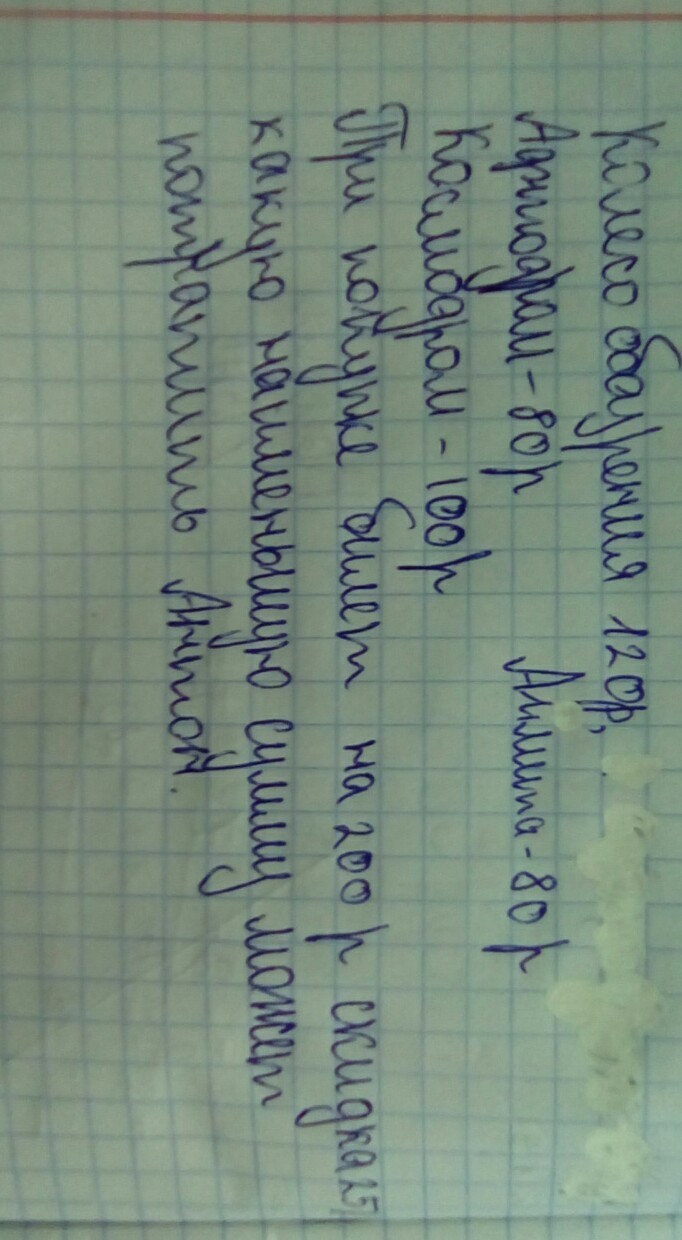 Колесо обозрения 120р,
Автодром - 80р Алиша - 80 р
Космодром - 100р
При покупке билет на 200 р скидка 25
какую наименьшую сумму может
потратить Антон.